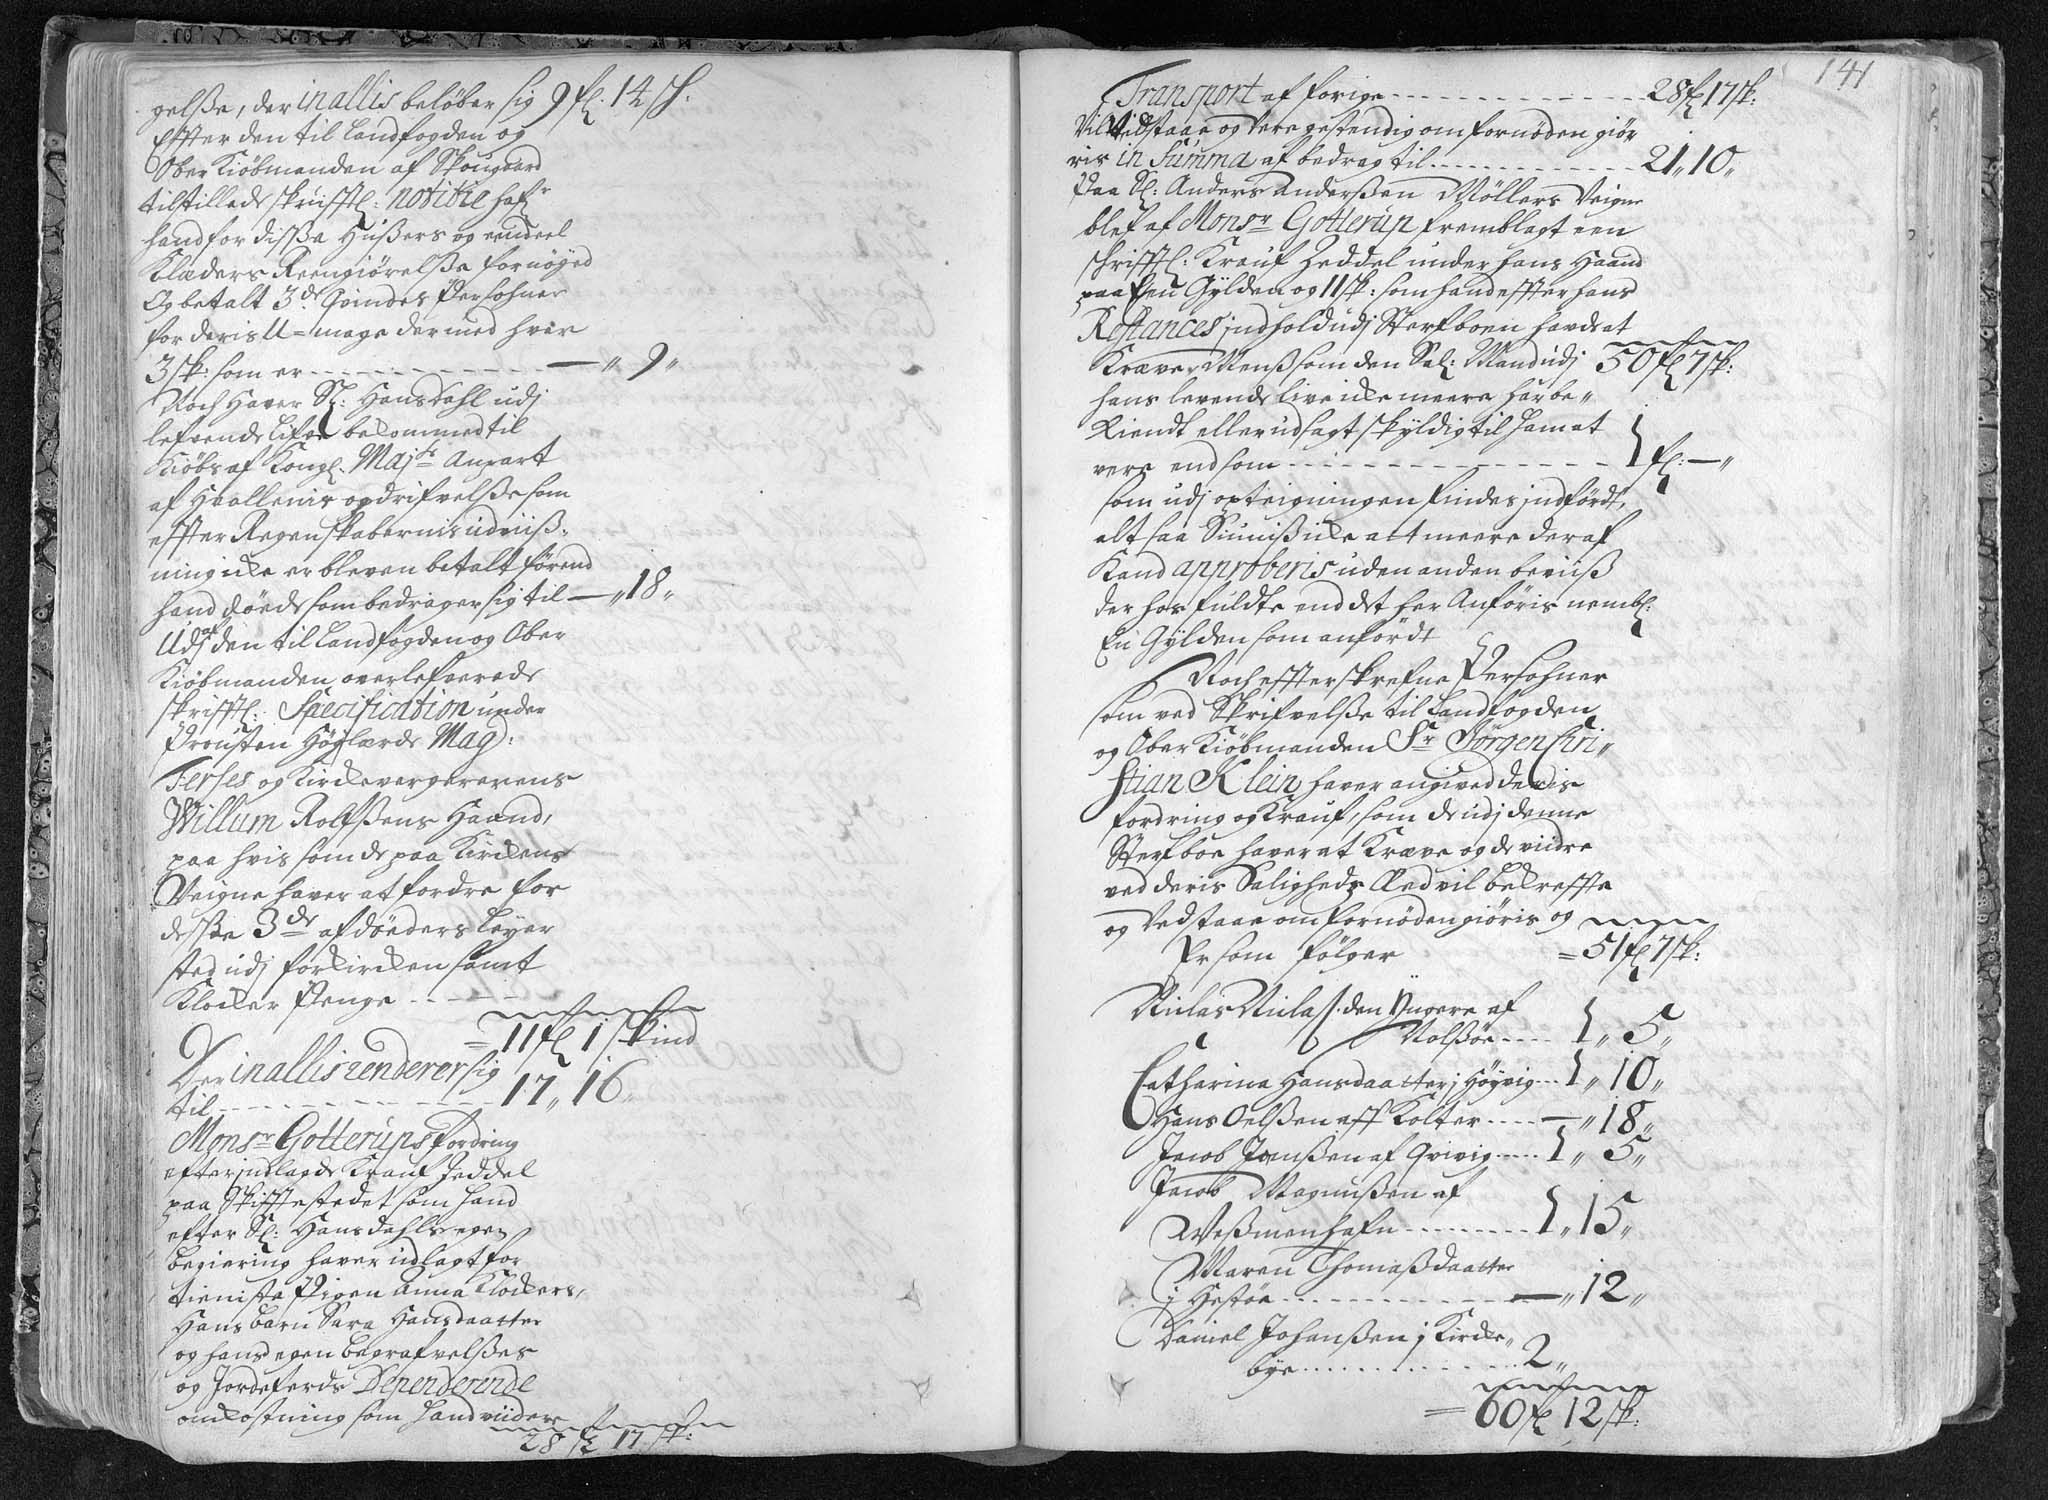 gelsße, der in allis beløber sig 9 fl: 14 sk:
Effter den til Landfogden og
Ober Kiøbmanden af Skougaard
tilstillede skrifftl: notitie hafr
hand for disße Hußers og eendeel
Klæders Reengiørelße fornøyed
Og betalt 3de Qvindes Persohner
for deris U=mage dermed hver
3 sk: som er - - - - - - - - - — „ 9 „
Noch Haver Sl: Hans Dahl udj
lefvende Lifve bekommed til
Kiøbs af Kongl. Majts Anpart
af Hvallenis opdrifvelße som
effter Regenskabernis udviiß:
ning icke er bleven betalt førend
hand døede som bedrager sig til — „ 18 „
Udj af den til Landfogden og Ober
Kiøbmanden overlefverede
skrifftl: Specification under
Prousten Høylærde Mag:
Ferses og Kirckevergerens
Willum Rolfßens Haand,
paa hvis som de paa Kirckens
Veigne haver at fordre for
desße 3de afdøeders Leyer
sted udj forkircken samt
Klocker Penge - - - - -
= 11 fl 1 skind
Der in allis renderer sig
til - - - - - - - - - 17 „ 16 „
Monsr Gotterups fordring
efter indlagde Krauf Zeddel
paa Skifftestedet som hand
efter Sl: Hans Dahls egen
begiering haver udlagt for
tieniste Pigen Anna Klockers,
Hans barn Sara Hansdaatter
og hans egen begrafvelßes
og Jordeferds Dependerende
omkostning som hand viidere
28 fl 17 sk:
141
Transport af forige - - - - - - - 28 fl 17 sk:
Vil Vedstaae og vere gestendig om fornøden giør
ris in Summa af bedrag til - - - - - 21 „ 10 „
Paa Sl: Anders Anderßen Møllers Veigne
blef af Monsr Gotterup fremblagt een
schrifftl: Krauf Zeddel under hans Haand
paa Een Gylden og 11 sk: som hand effter hans
Restances indhold udj Sterfboen havde at
Kræve Menß som den Sal: Mand udj 50 fl 7 sk:
hans levende live icke meere har be„
kiendt eller udsagt skyldig til ham at
vere end som - - - - - - - - - 1 fl: — „
som udj opteigningen findes indførdt,
alt saa Siuniß icke att meere deraf
Kand approberis uden anden beviiß
der hos fuldte end det her Anføris nembl:
En Gylden som anført
Noch effterskrefne Persohner
som ved Skrifvelße til Landfogden
og Ober Kiøbmanden Sr Jørgen Chri„
stian Klein haver angived deris
fordring og Krauf, som de udj denne
Sterfboe haver at Kræve og de viidre
ved deris Saligheds Æed vil bekreffte
og Vedstaae om fornøden giøris og
Er som følger = 51 fl 7 sk:
Niclas Niclaß. den Yngere af
Nolßøe - - - - 1 „ 5 „
Catharina Hansdaatter j Høyvig - - 1 „ 10 „
Hans Oelßen aff Kolter - - - - — „ 18 „
Jacob Jonßen af Qvivig - - - - 1 „ 5 „
Jacob Magnußen af
Weßmenhafn - - - - - - - 1 „ 15 „
Maren Thomaßdaatter
j Hestøe - - - - - - - - — „ 12 „
Daniel Johanßen j Kircke„
bye - - - - - - - - 2 „
= 60 fl 12 sk: